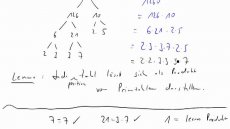 126 10 = 126 · 10
6 21 2 5 = 6 · 21 · 2 · 5
2 3 3 7 = 2 · 3 · 3 · 7 · 2 · 5
Lemma: Jede Zahl lässt sich als Produkt
positive von Primzahlen darstellen.
7 = 7 ✓ 21 = 3 · 7 ✓ 1 = leeres Produkt